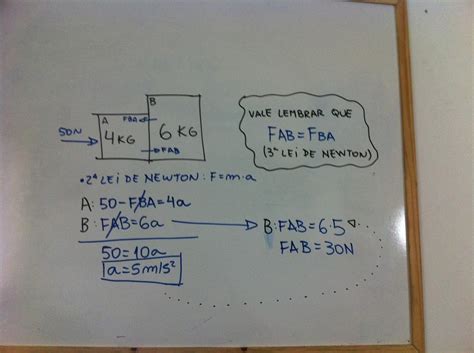 B
A FBA
50N 4KG 6KG
FAB
VALE LEMBRAR QUE
FAB=FBA
(3ª LEI DE NEWTON)
•2ª LEI DE NEWTON: F=m.a
A: 50-FBA=4a
B: FAB=6a
50=10a
a=5m/s²
B: FAB=6.5
FAB=30N